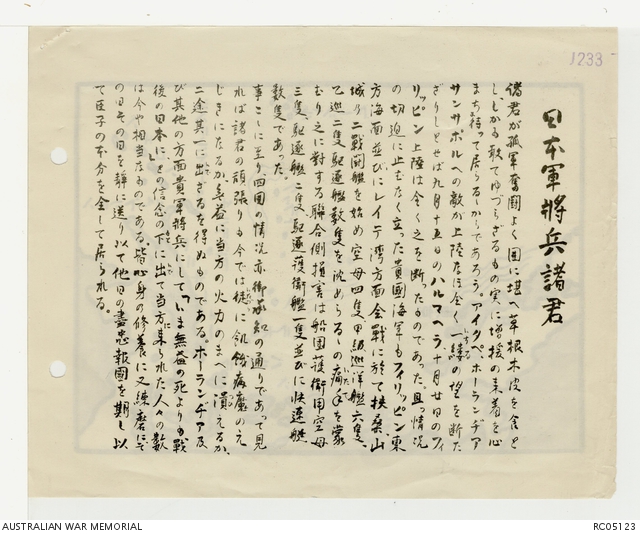 J233
日本軍將兵諸君
諸君が孤軍奮闘よく困に堪へ草根木皮を食と
し、しかも敢てゆづらざるもの実に増援の来着を心
まち待って居らるゝからであらう。アイタペ、ホーランヂア
サンサポルへの敵が上陸なほ全く一縷の望を断た
ざりしとせば九月十五日のハルマヘラ、十月廿日のフィ
リッピン上陸は全く之を断たものであった。且つ情況
の切迫に止むなく立った貴國海軍もフィリッピン東
方海面並びにレイテ湾方面会戰に於て扶桑、山
城の二戰闘艦を始め空母四隻甲級巡洋艦六隻、
乙巡二隻駆逐艦数隻を沈めらるゝの痛手を蒙
むり之に対する聯合側損害は船團護衛用空母
三隻、駆逐艦二隻、駆逐護衛艦一隻並びに快速艇
数隻であった。
事こゝに至り四囲の情況亦御承知の通りであって見
れば諸君の頑張りも今では徒に飢餓病魔のえ
じきになるか無益に当方の火力のまへに潰えるか、
二途其一に出ざるを得ぬものである。ホーランヂア及
び其他の方面貴軍將兵にして「いま無益の死よりも戰
後の日本に」との信念の下に出て当方に来られた人々の数
は今や相当なものである。皆心身の修養に又練磨にそ
の日その日を静に送り以て他日の盡忠報國を期し以
て臣子の本分を全して居られる。
AUSTRALIAN WAR MEMORIAL
RC05123